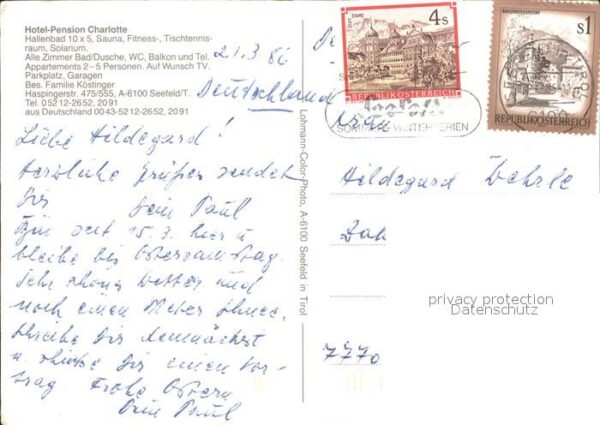 Hotel-Pension Charlotte
Hallenbad 10 x 5, Sauna, Fitness-, Tischtennis-
raum, Solarium.
Alle Zimmer Bad/Dusche, WC, Balkon und Tel.
Appartements 2–5 Personen. Auf Wunsch TV.
Parkplatz, Garagen
Bes. Familie Köstinger
Haspingerstr. 475/555, A-6100 Seefeld/T.
Tel. 05212-2652, 2091
aus Deutschland 0043-5212-2652, 2091
21.3.86
Deutschland
Liebe Hildegard!
Herzliche Grüße sendet
Dir
Dein Paul
Bin seit 15.3. hier u
bleibe bis Ostersamstag.
Sehr schönes Wetter und
noch einen Meter Schnee.
Schreibe Dir demnächst
u. schicke Dir einen Vor-
trag. Frohe Ostern
Dein Paul
Lohmann-Color-Photo, A-6100 Seefeld in Tirol
STIFT STAMS
4 S
REPUBLIK ÖSTERREICH
S1
REPUBLIK ÖSTERREICH
SOMMER WINTERFERIEN
Frau
Hildegard Wehrle
privacy protection
Datenschutz
7770